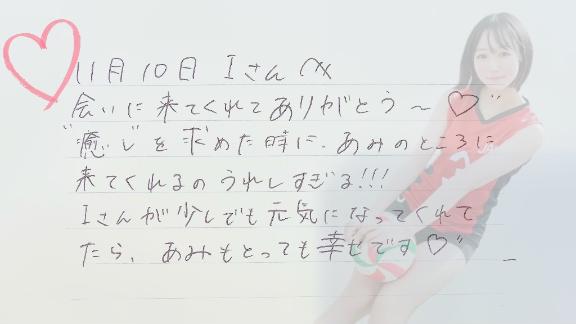 11月10日 Iさんへ
会いに来てくれてありがとう〜♡"
"癒し"を求めた時に、あみのところに
来てくれるのうれしすぎる!!!
Iさんが少しでも元気になってくれて
たら、あみもとっても幸せです♡"